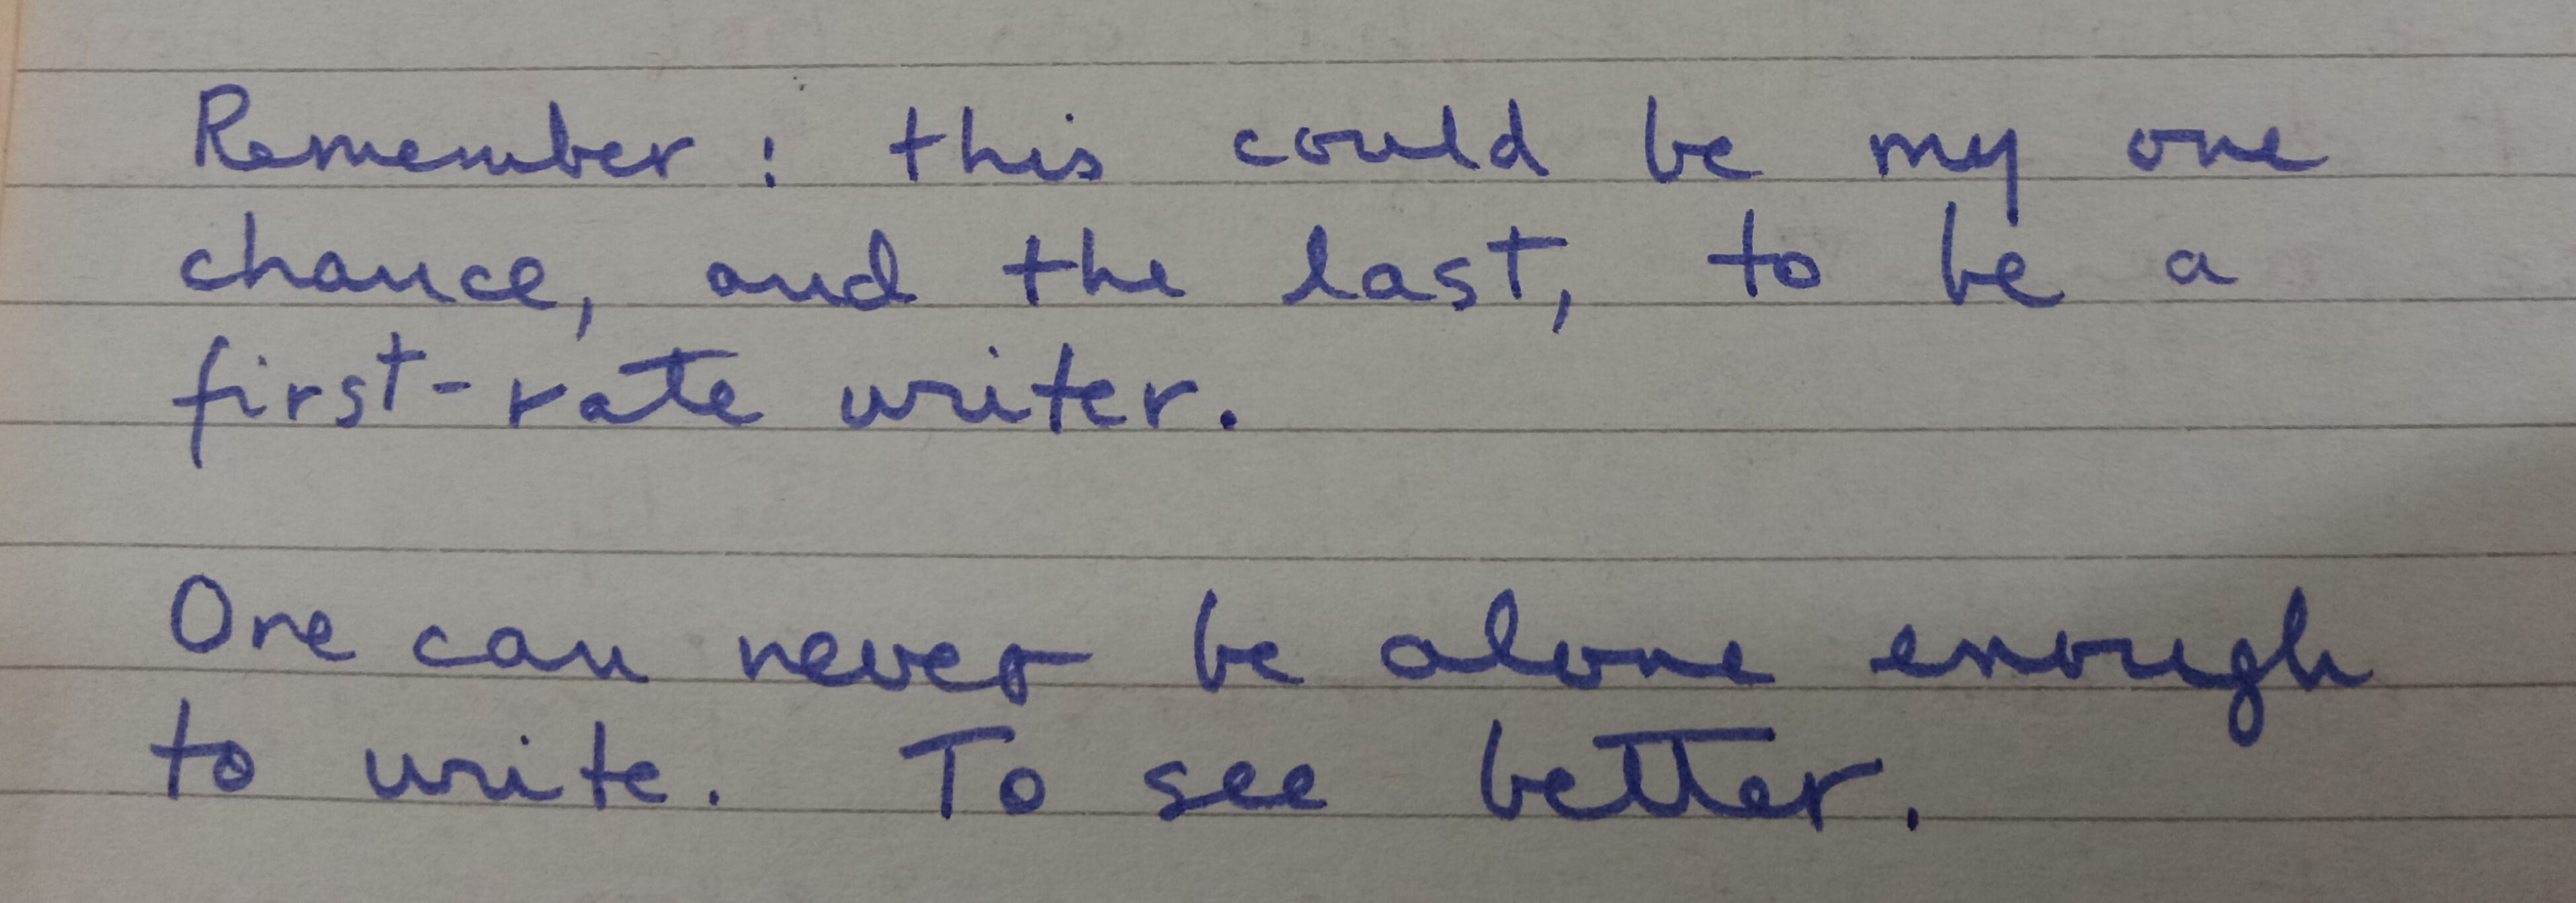 Remember: this could be my one
chance, and the last, to be a
first-rate writer.
One can never be alone enough
to write. To see better.